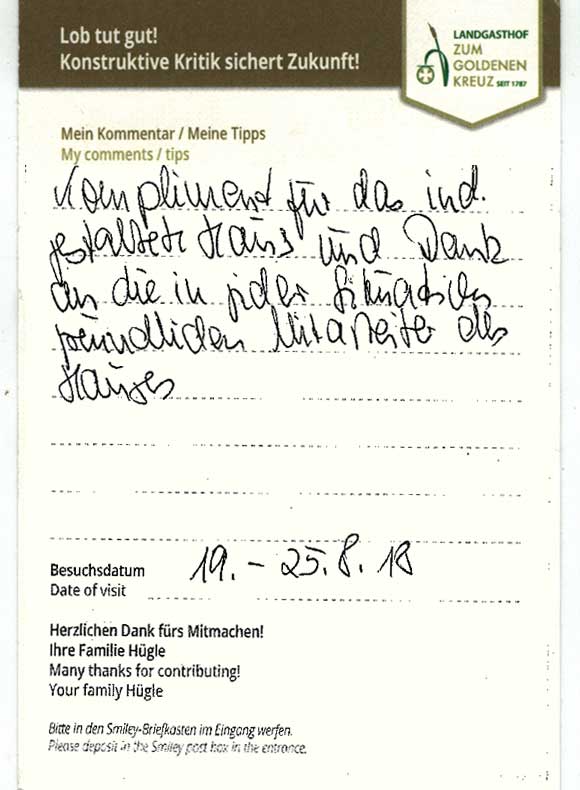 Lob tut gut!
Konstruktive Kritik sichert Zukunft!
LANDGASTHOF
ZUM
GOLDENEN
KREUZ SEIT 1787
Mein Kommentar / Meine Tipps
My comments / tips
Kompliment für das ind.
gestaltete Haus und Dank
an die in jeder Situation
freundlichen Mitarbeiter des
Hauses
Besuchsdatum 19. - 25.8.18
Date of visit
Herzlichen Dank fürs Mitmachen!
Ihre Familie Hügle
Many thanks for contributing!
Your family Hügle
Bitte in den Smiley-Briefkasten im Eingang werfen.
Please deposit in the Smiley post box in the entrance.